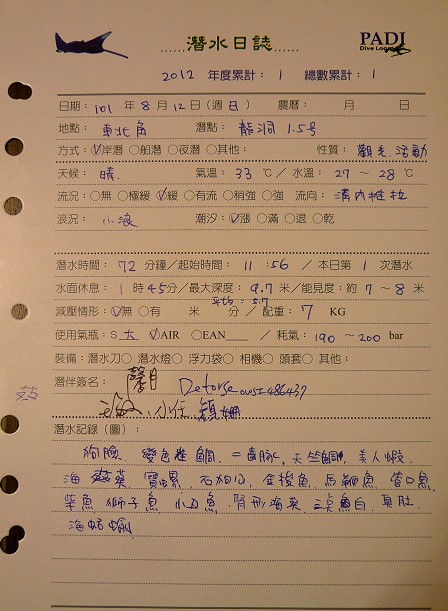 潛水日誌
PADI
Dive Log
2012 年度累計： 1 總數累計： 1
日期： 101 年 8 月 12 日（週 日） 農曆： 月 日
地點： 東北角 潛點： 龍洞 1.5号
方式：岸潛 ○船潛 ○夜潛 ○其他： 性質： 觀光.活動
天候： 晴. 氣溫： 33 ℃／水溫： 27 ~ 28 ℃
流況：○無 ○極緩 緩 ○有流 ○稍強 ○強 流向： 灣內
浪況： 小浪 潮汐：漲 ○滿 ○退 ○乾
潛水時間： 72 分鐘／起始時間： 11 :56 ／本日第 1 次潛水
水面休息： 1 時 45 分／最大深度： 9.7 米／能見度：約 7 ~ 8 米
平均：5.7
減壓情形：無 ○有 米 分／配重： 7 KG
使用氣瓶：S 大 AIR ○EAN___ ／耗氣： 190 ~ 200 bar
裝備：潛水刀○ 潛水燈○ 浮力袋○ 相機○ 頭套○ 其他：
潛伴簽名： 馨月 Detorse
小任
潛水記錄（圖）：
狗臉. 變色雀鯛. 天竺鯛. 美人蝦
海葵. 石加口. 金梭魚. 馬鞭魚. 管口魚.
柴魚 獅子魚 小丑魚. 腎形海葵.
海蛞蝓